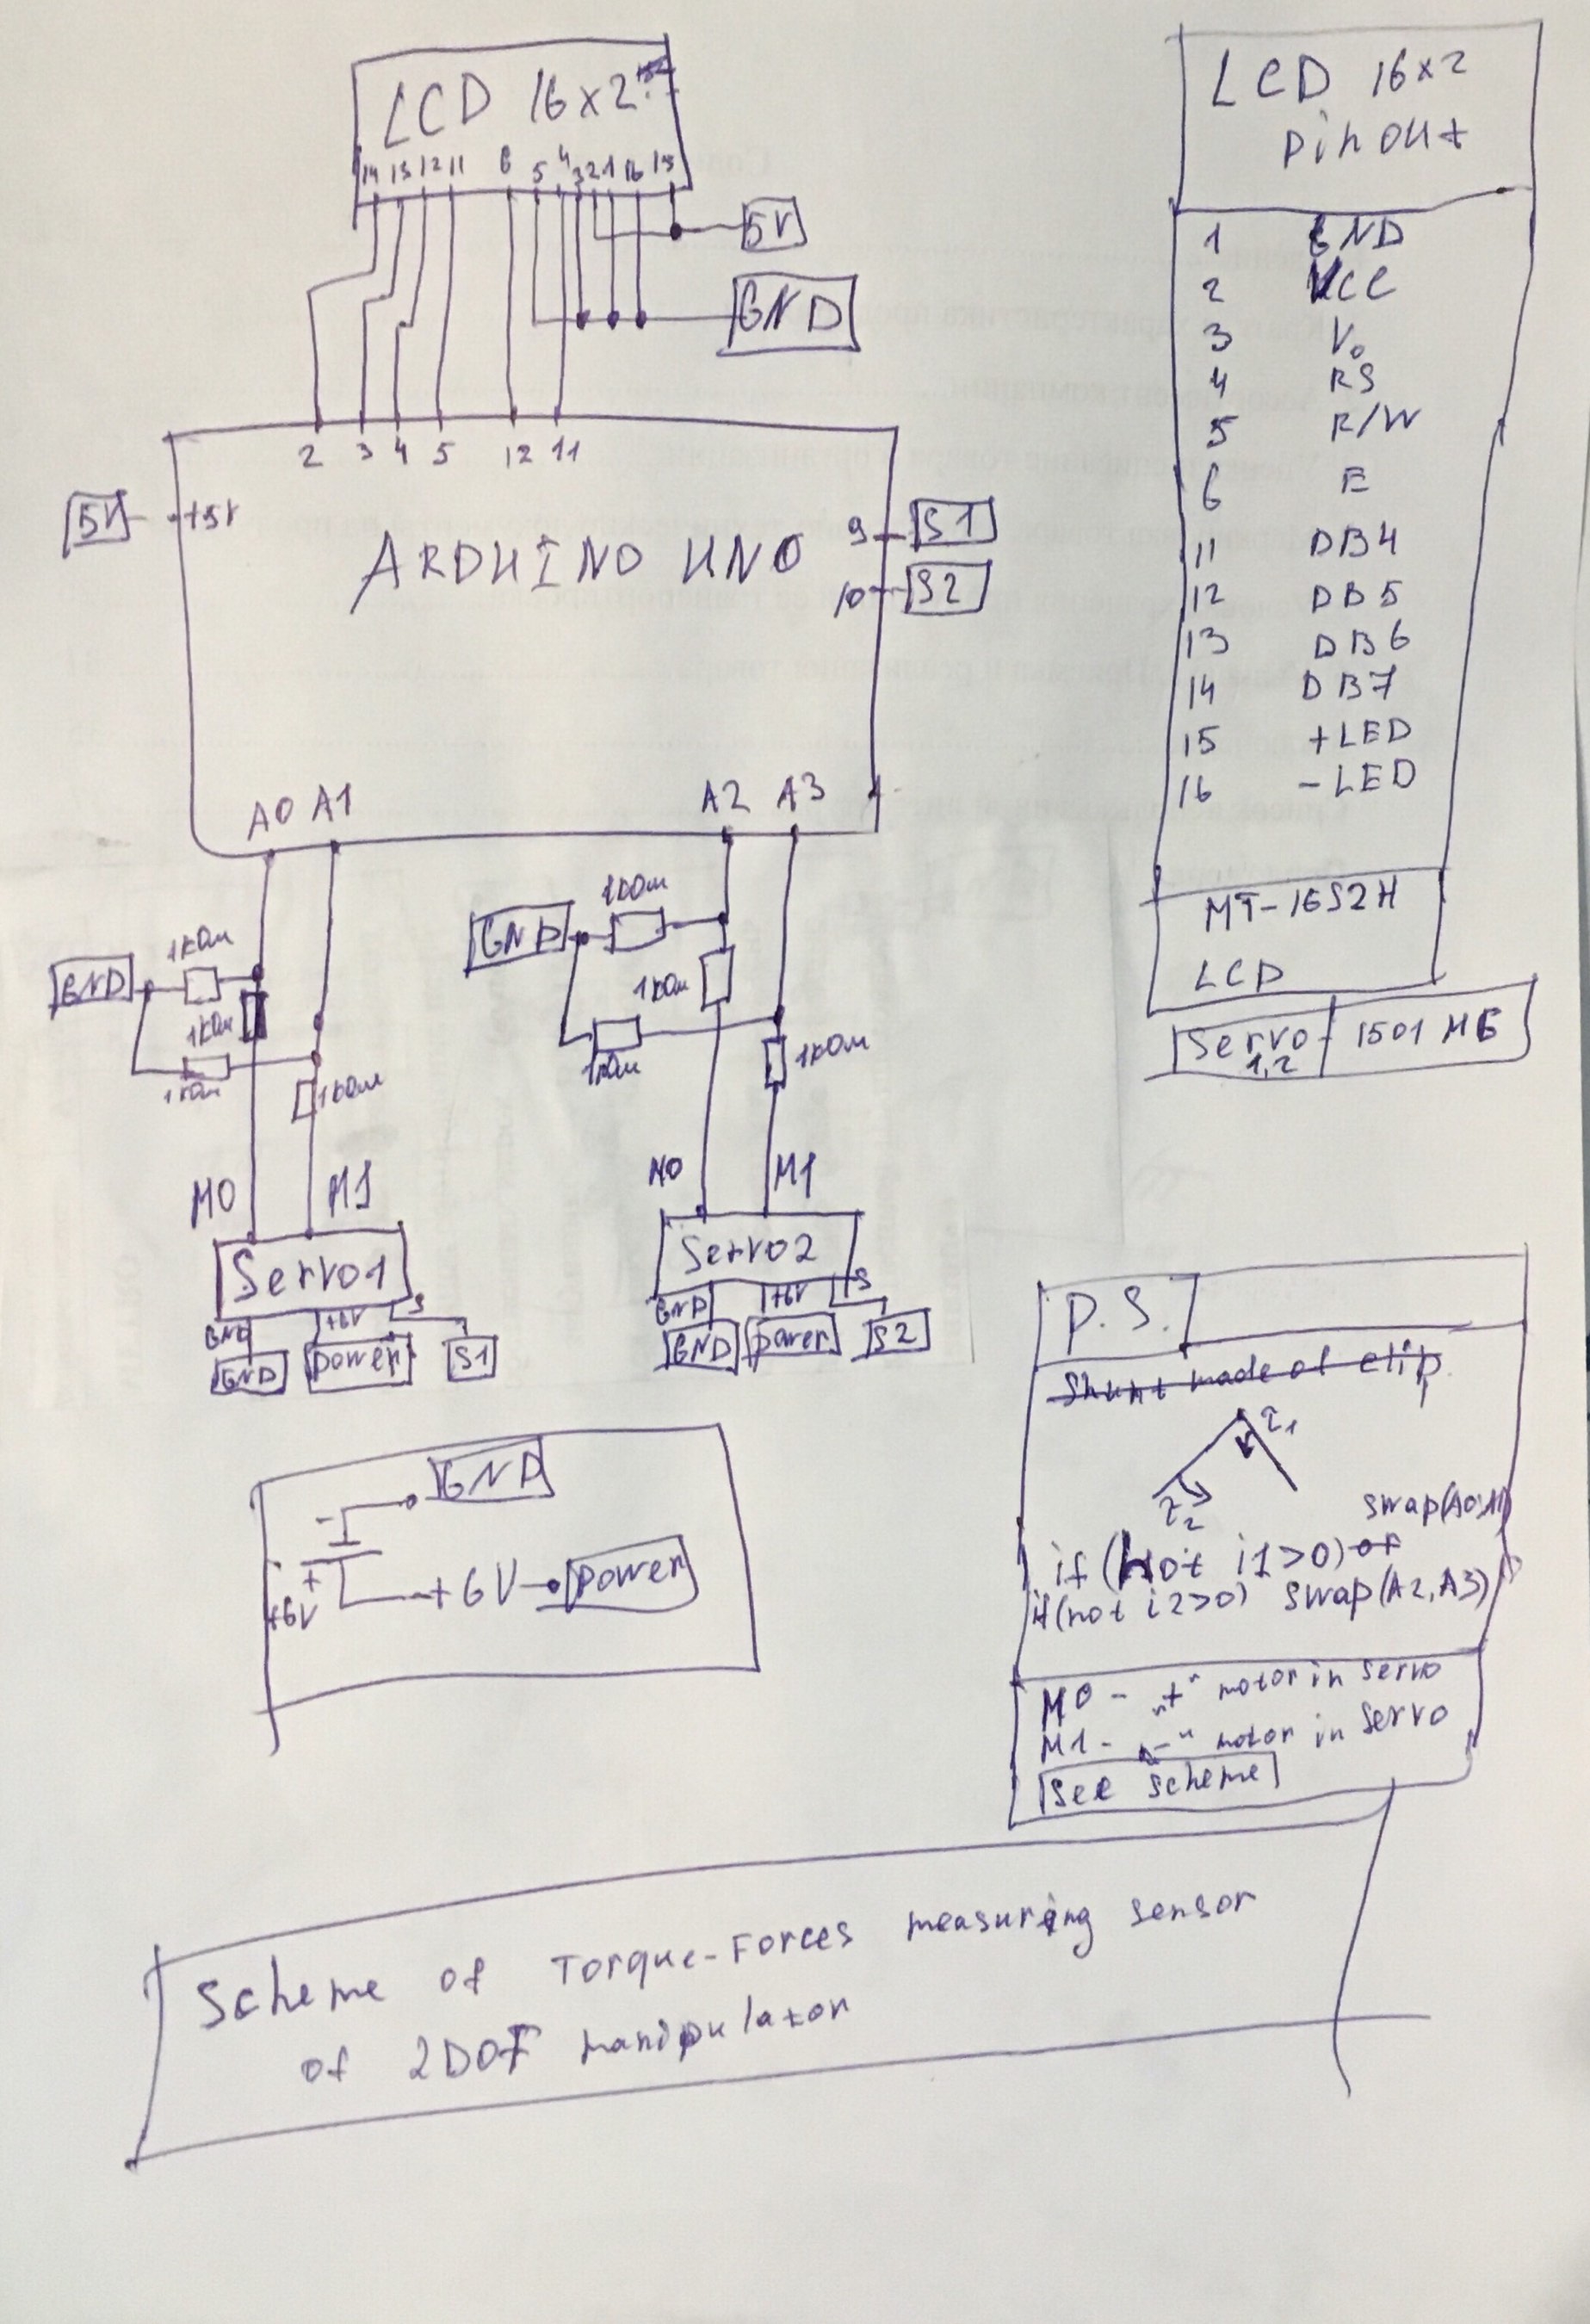 LCD 16x2
14 13 12 11 6 5 4 3 2 1 16 15
5V
GND
2 3 4 5 12 11
5V +5V
ARDUINO UNO
9 S1
10 S2
A0 A1 A2 A3
GND 1kОм
1kОм
1kОм
1kОм
GND 1kОм
1kОм
1kОм
1kОм
M0 M1
Servo1
GND +6V S
GND power S1
M0 M1
Servo2
GND +6V S
GND power S2
- GND
+
+6V
+6V power
LCD 16x2
pinout
1 GND
2 VCC
3 V₀
4 RS
5 R/W
6 E
11 DB4
12 DB5
13 DB6
14 DB7
15 +LED
16 -LED
MT-16S2H
LCD
Servo 1,2 1501 MG
P.S.
Shunt made of clip
τ₁
τ₂
swap(A0,A1)
if (not i1>0) or
if (not i2>0) swap(A2,A3)
M0 - „+" motor in servo
M1 - „-" motor in servo
See scheme
Scheme of Torque-Forces measuring sensor
of 2DOF manipulator